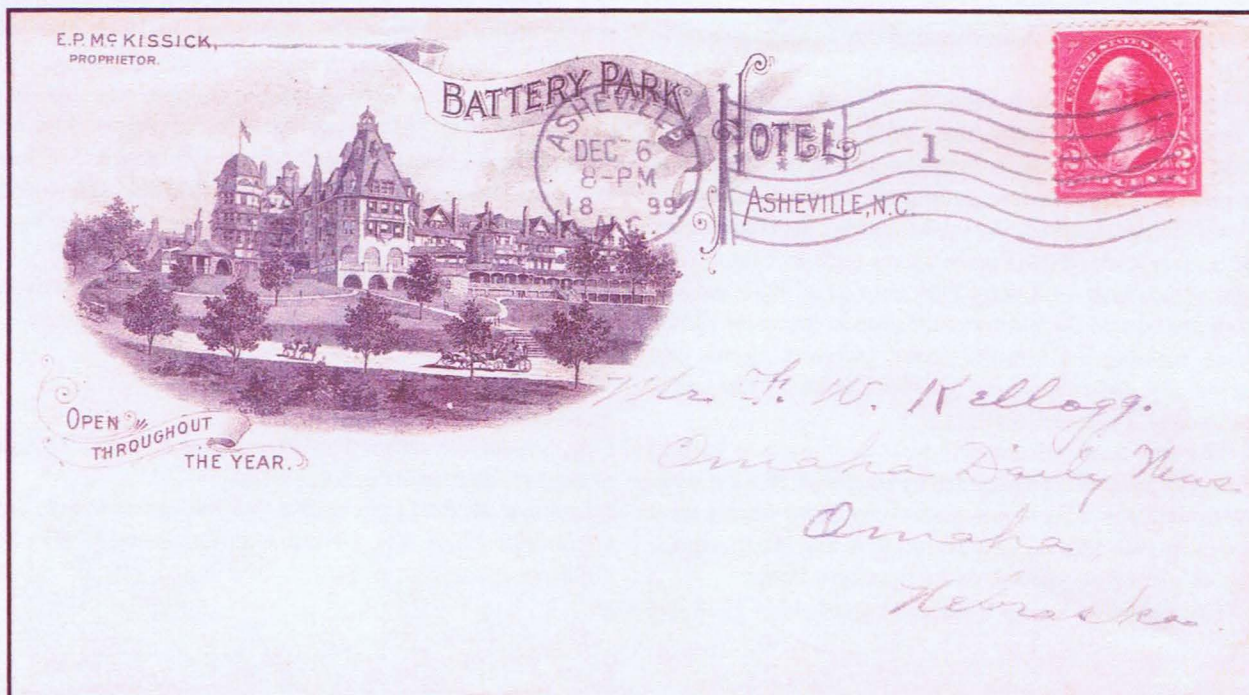 E.P. McKISSICK,
PROPRIETOR.
BATTERY PARK
HOTEL
ASHEVILLE, N.C.
ASHEVILLE
DEC 6
8-PM
18 99
N.C.
1
UNITED STATES POSTAGE
2 2
CENTS
OPEN
THROUGHOUT
THE YEAR.
Mr F. W. Kellogg.
Omaha Daily News
Omaha
Nebraska.